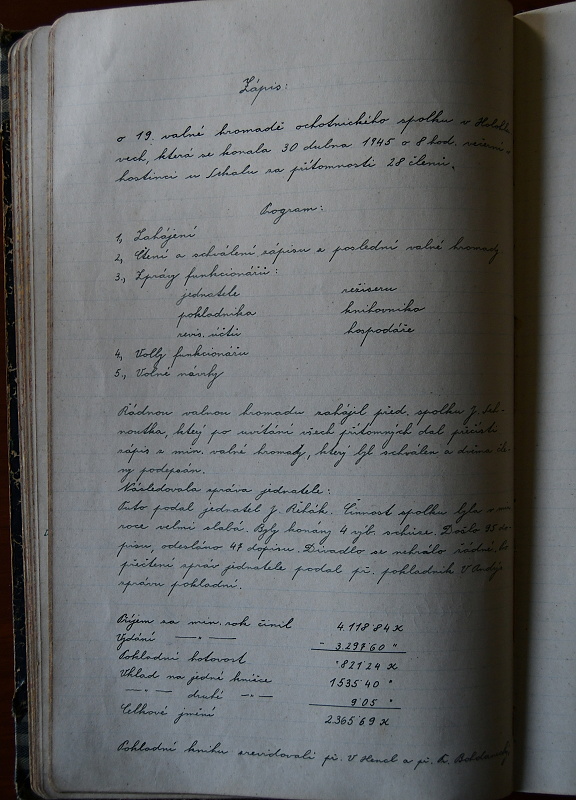 Zápis:
o 19. valné hromadě ochotnického spolku v
vech, která se konala 30 dubna 1945 o 8 hod. večerní v
hostinci u Sehalu za přítomnosti 28 členů.
Program:
1, Zahájení
2, Čtení a schválení zápisu z poslední valné hromady
3., Zprávy funkcionářů:
jednatele režiseru
pokladníka knihovníka
revis. účtů hospodáře
4, Volby funkcionářu
5., Volné návrhy
Řádnou valnou hromadu zahájil před. spolku J.
noutka, který po uvítání všech přítomných dal přečísti
zápis z min. valné hromady, který byl schválen a dvěma čle-
ny podepsán.
Následovala zpráva jednatele:
Tuto podal jednatel J. Řihák. Činnost spolku byla v m.
roce velmi slabá. Byly konány 4 výb. schůze. Došlo 35 do-
pisu, odesláno 47 dopisu. Divadlo se nehrálo žádné, po
přečtení zpráv jednatele podal př. pokladník V.
zprávu pokladní.
Příjem za min. rok činil 4.118 84 K
Vydání —„— - 3.297 60 "
Pokladní hotovost 821 24 K
Vklad na jedné knížce 1535 40 "
—„— druhé —„— 9 05 "
Celkové jmění 2.365 69 K
Pokladní knihu zrevidovali př. V Hencl a př. Fr.